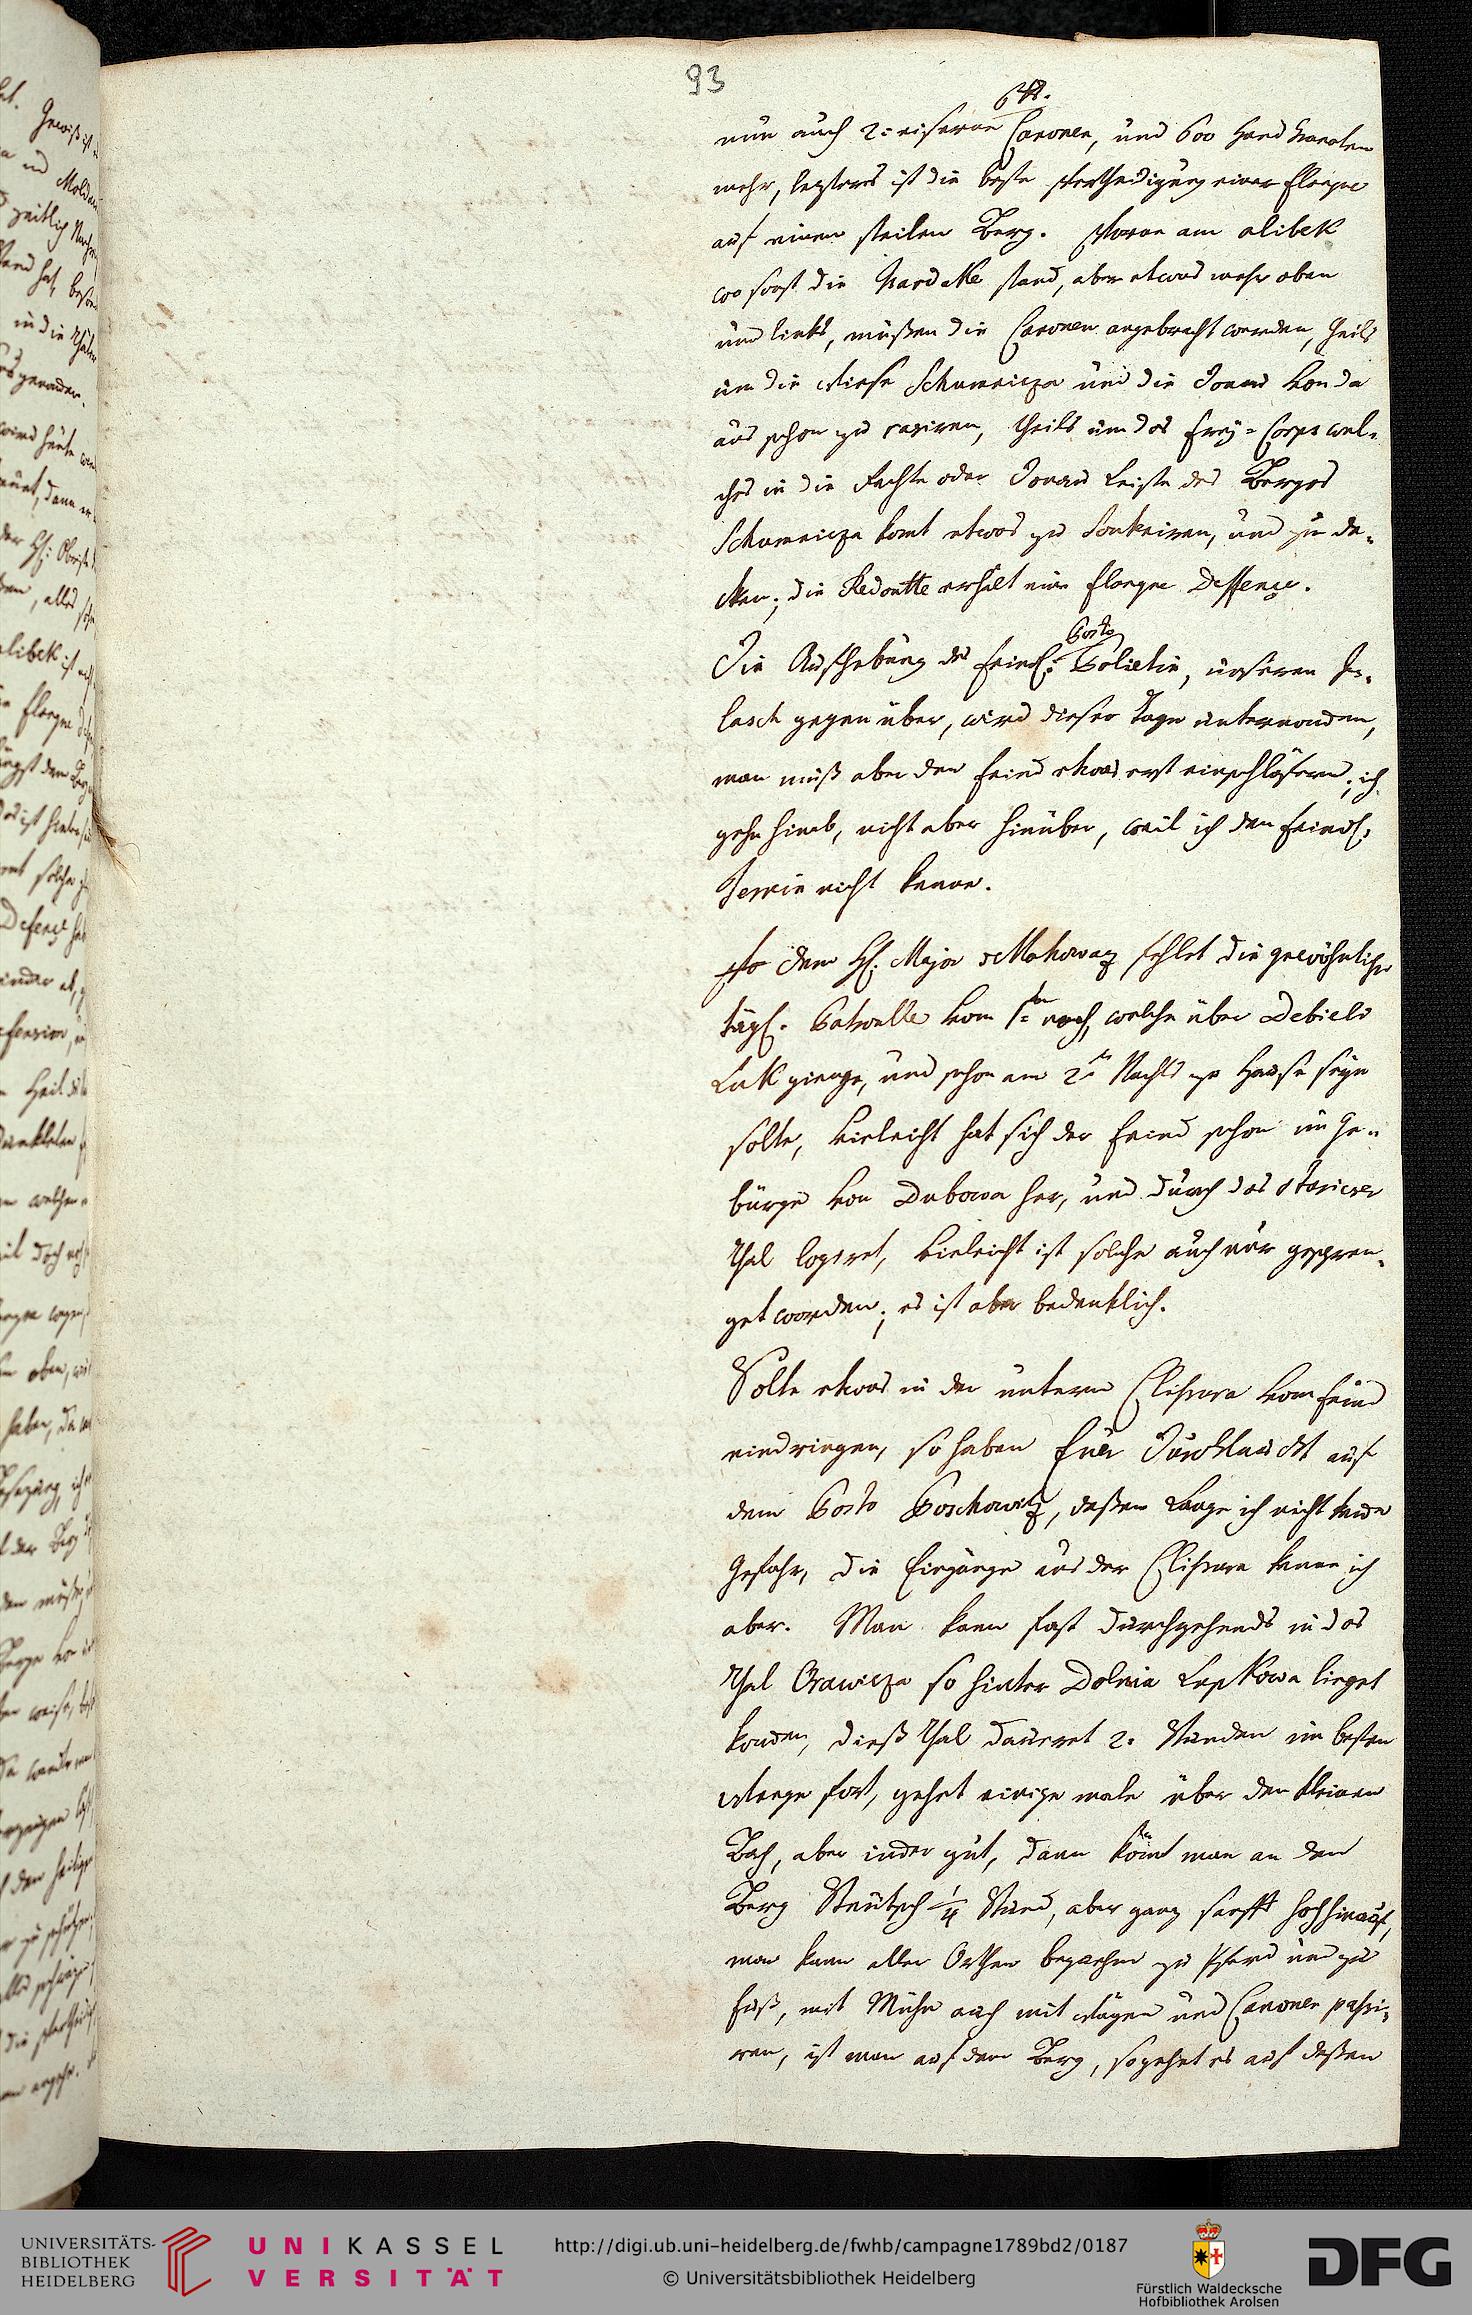 93
6 ℔.
nun auch 2: eiserne Canonen, und 600 Hand Granaten
mehr, lezteres ist die beste Vertheidigung einer Flanque
auf einem steilen Berg. Vorne am alibek
wo sonst die Tschardake stand, aber etwas mehr oben
und links, müßen die Canonen angebracht werden, theils
um die Wiese Schumeicza und die Donau von da
aus schon zu rasiren, theils um das Frey-Corps wel-
ches in die Rechte oder Donau Leiste des Berges
Schumeicza komt etwas zu souteniren, und zu de-
ken; die Redoutte erhält eine Flanque Deffense.
Posto
Die Aufhebung des feindl: Polietin, unseren
lasch gegen über, wird dieser Tage unternomen,
man muß aber den Feind etwas erst einschläfern; ich
gehe hinab, nicht aber hinüber, weil ich den feindl:
Terrein nicht kenne.
Von dem H. Major Mahowaz fehlet die gewöhnliche
tägl. Patroulle vom 1ten noch, welche über Debieli
Luk gienge, und schon am 2ten Nachts zu Hause seyn
solte, vieleicht hat sich der Feind schon im Ge-
bürge von Dubowa her, und durch das
Thal logiret, vieleicht ist solche auch nur gespren-
get worden; es ist aber bedenklich.
Solte etwas in der untern Clissura vom Feind
eindringen, so haben Euer Durchlaucht auf
dem Posto Poschowitz, deßen Lage ich nicht kenne
Gefahr, die Eingänge aus der Clissura kenne ich
aber. Man kann fast durchgehends in das
Thal Orawicza so hinter Dolnia Lupkowa lieget
komen, dieß Thal dauret 2: Stunden im besten
Weege fort, gehet einige male über den kleinen
Bach, aber immer gut, dann kömt man an den
Berg Stäutsch 1/4 Stund, aber ganz sanfft hoch hinauf,
man kann aller Orthen bequehm zu Pferd und zu
Fuß, mit Mühe auch mit Wägen und Canonen passi-
ren, ist man auf dem Berg, so gehet es auf deßen
UNIVERSITÄTS-
BIBLIOTHEK
HEIDELBERG
UNIKASSEL
VERSITÄT
http://digi.ub.uni-heidelberg.de/fwhb/campagne1789bd2/0187
© Universitätsbibliothek Heidelberg
Fürstlich Waldecksche
Hofbibliothek Arolsen
DFG